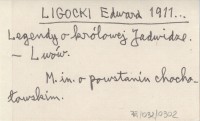 LIGOCKI Edward 1911...
Legendy o królowej Jadwidze.
– Lwów.
M. in. o powstaniu chocho-
łowskim.